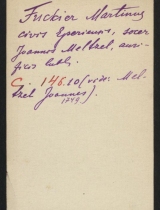 Fischer Martinus
civis Eperiensis, socer
Joannes Meltzel, auri-
fices lubl.
C. 146.10 (vide: Mel-
tzel Joannes).
1749.